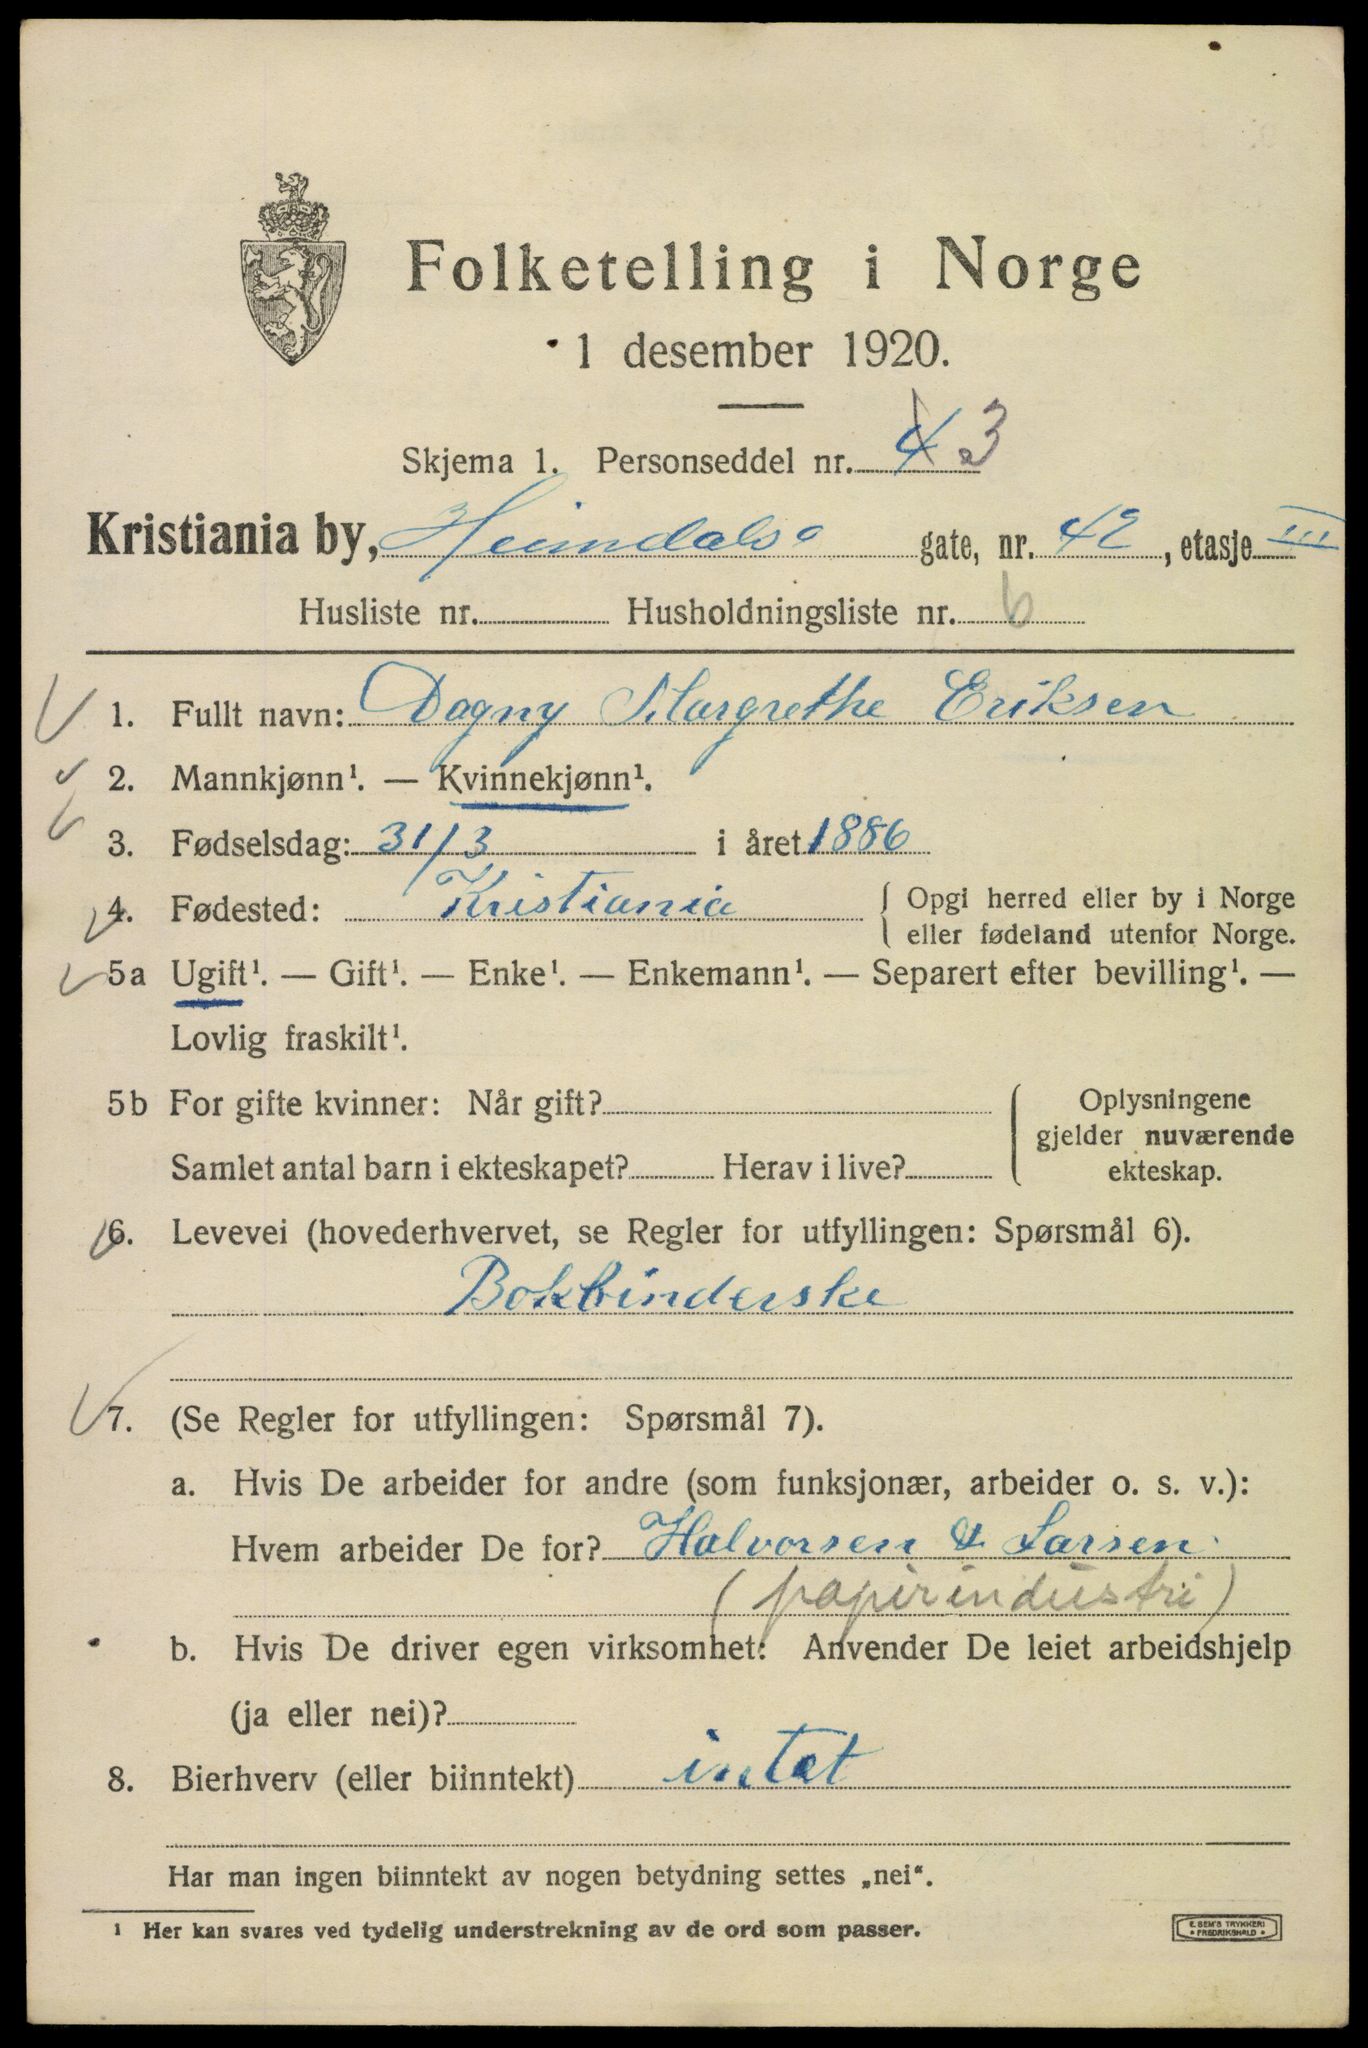 Folketelling i Norge
1 desember 1920.
Skjema 1. Personseddel nr. 4 3
Kristiania by, Heimdals gate, nr. 42, etasje III
Husliste nr. Husholdningsliste nr. 6
1. Fullt navn: Dagny Margrethe Eriksen
2. Mannkjønn¹. — Kvinnekjønn¹.
3. Fødselsdag: 31/3 i året 1886
4. Fødested: Kristiania { Opgi herred eller by i Norge
eller fødeland utenfor Norge.
5a Ugift¹. — Gift¹. — Enke¹. — Enkemann¹. — Separert efter bevilling¹. —
Lovlig fraskilt¹.
5b For gifte kvinner: Når gift?
Samlet antal barn i ekteskapet? Herav i live?
Oplysningene
gjelder nuværende
ekteskap.
6. Levevei (hovederhvervet, se Regler for utfyllingen: Spørsmål 6).
Bokbinderske
7. (Se Regler for utfyllingen: Spørsmål 7).
a. Hvis De arbeider for andre (som funksjonær, arbeider o. s. v.):
Hvem arbeider De for? Halvorsen & Larsen
(papirindustri)
b. Hvis De driver egen virksomhet: Anvender De leiet arbeidshjelp
(ja eller nei)?
8. Bierhverv (eller biinntekt) intet
Har man ingen biinntekt av nogen betydning settes „nei“.
¹ Her kan svares ved tydelig understrekning av de ord som passer.
E. SEM'S TRYKKERI
* FREDRIKSHALD *